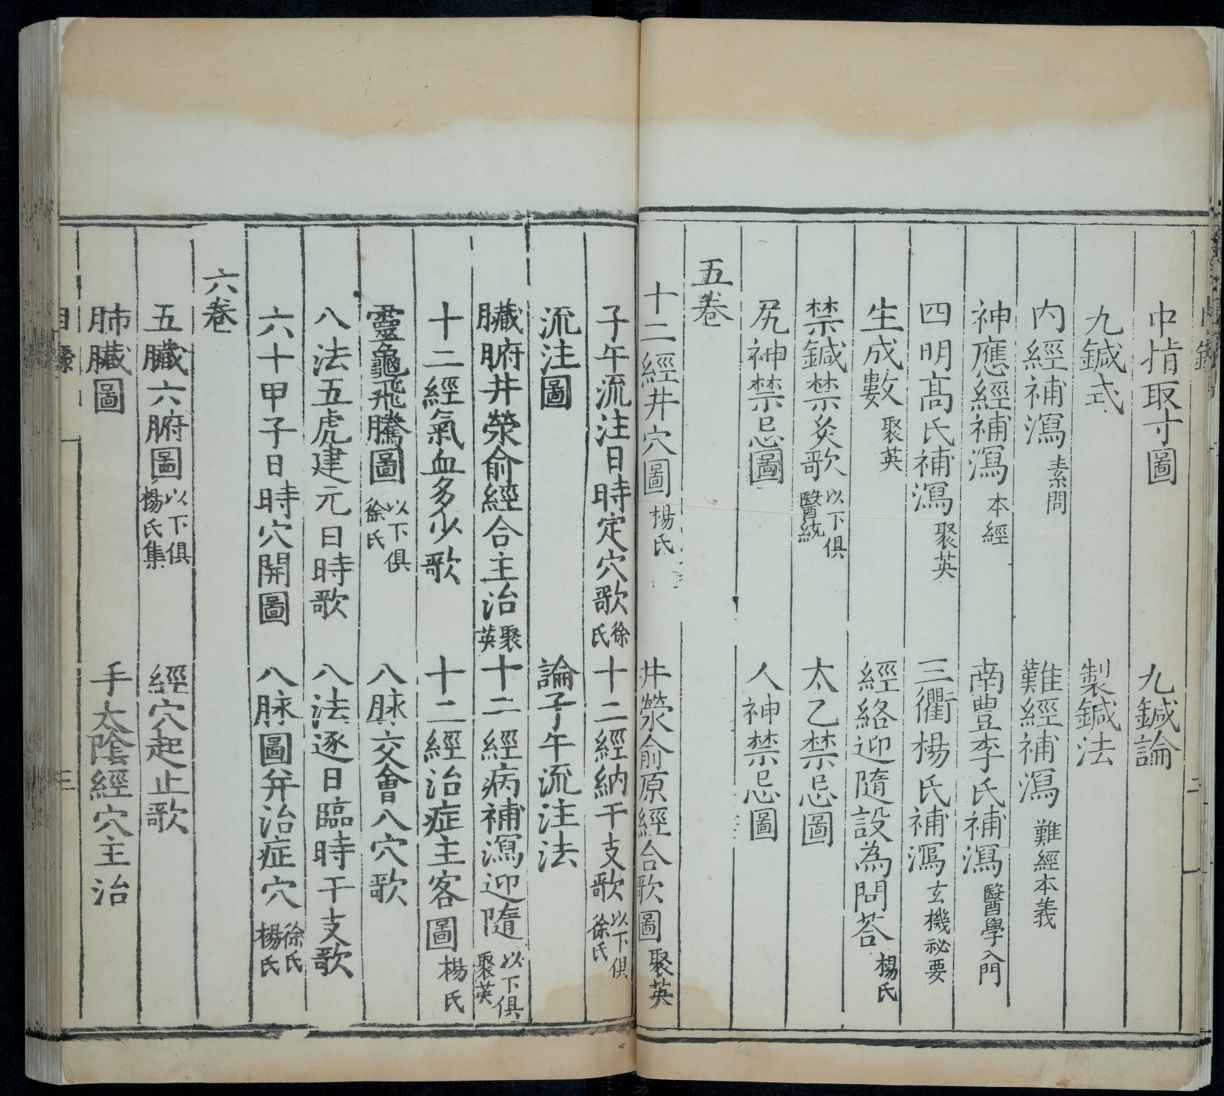 中指取寸圖　九鍼論
九鍼式　製鍼法
內經補瀉素問　難經補瀉難經本義
神應經補瀉本經　南豐李氏補瀉醫學入門
四明高氏補瀉聚英　三衢楊氏補瀉玄機祕要
生成數聚英　經絡迎隨設為問荅楊氏
禁鍼禁灸歌以下俱醫統　太乙禁忌圖
尻神禁忌圖　人神禁忌圖
五卷
十二經井穴圖楊氏　井滎俞原經合歌圖聚英
子午流注日時定穴歌徐氏　十二經納干支歌以下俱徐氏
流注圖　論子午流注法
臟腑井滎俞經合主治聚英　十二經病補瀉迎隨以下俱聚英
十二經氣血多少歌　十二經治症主客圖楊氏
靈龜飛騰圖以下俱徐氏　八脉交會八穴歌
八法五虎建元日時歌　八法逐日臨時干支歌
六十甲子日時穴開圖　八脉圖并治症穴徐氏楊氏
六卷
五臟六腑圖以下俱楊氏集　經穴起止歌
肺臟圖　手太陰經穴主治
目錄　三